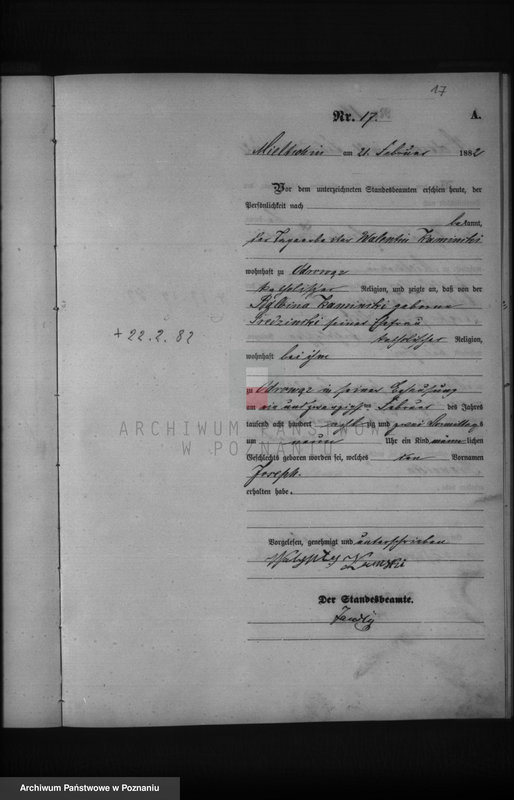 17
Nr. 17. A.
Mielschin am 21. Februar 1882
Vor dem unterzeichneten Standesbeamten erschien heute, der
Persönlichkeit nach
bekannt,
der Tagearbeiter Valentin Kaminski
wohnhaft zu Odrowąz
katholischer Religion, und zeigte an, daß von der
Balbina Kaminski geborne
Sredzinski seiner Ehefrau
katholischer Religion,
+ 22.2.82
wohnhaft bei ihm
zu Odrowąz in seiner Behausung
am ein und zwanzigsten Februar des Jahres
tausend acht hundert achtzig und zwei Vormittags
um neun Uhr ein Kind männlichen
Geschlechts geboren worden sei, welches den Vornamen
Joseph
erhalten habe.
Vorgelesen, genehmigt und unterschrieben
Der Standesbeamte.
ARCHIWUM PAŃSTWOWE
W POZNANIU
Archiwum Państwowe w Poznaniu